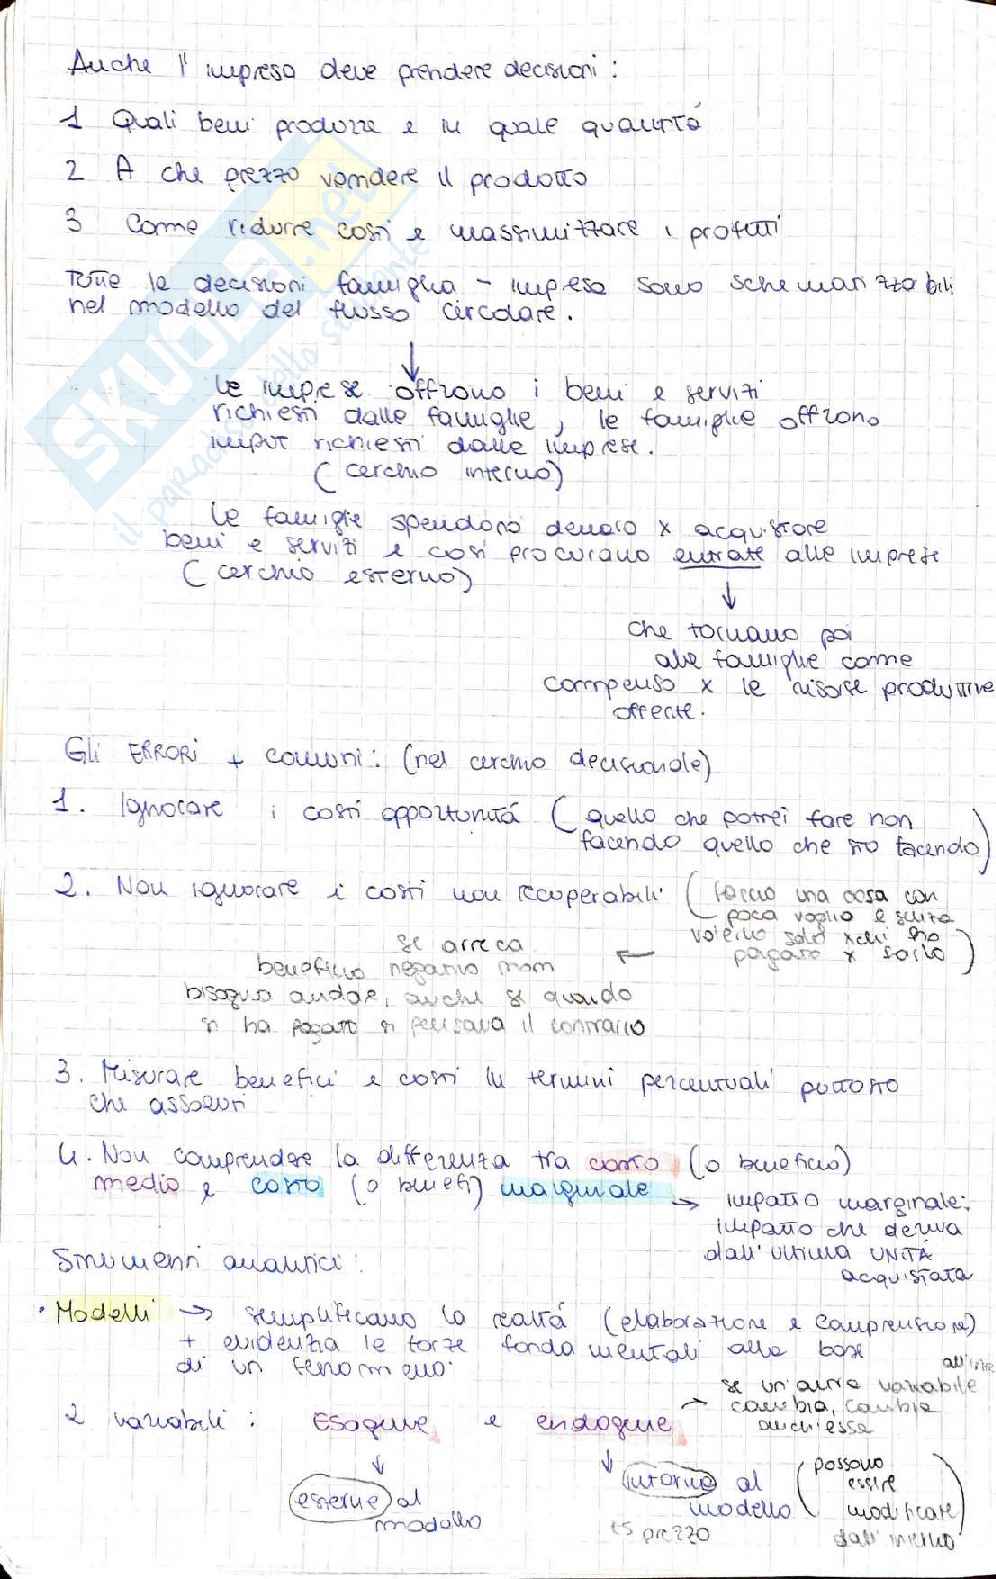 Anche l'impresa deve prendere decisioni:
1 Quali beni produrre e in quale quantità
2 A che prezzo vendere il prodotto
3 Come ridurre costi e massimizzare i profitti
Tutte le decisioni famiglia - impresa sono schematizzabili
nel modello del flusso circolare.
le imprese offrono i beni e servizi
richiesti dalle famiglie, le famiglie offrono
input richiesti dalle imprese.
(cerchio interno)
le famiglie spendono denaro x acquistare
beni e servizi e così procurano entrate alle imprese
(cerchio esterno)
che tornano poi
alle famiglie come
compenso x le risorse produttive
offerte.
Gli ERRORI + comuni: (nel cerchio decisionale)
1. Ignorare i costi opportunità (quello che potrei fare non
facendo quello che sto facendo)
2. Non ignorare i costi non recuperabili (faccio una cosa con
poca voglia e senza
volerlo solo xchè ho
pagato x farlo)
se arreca
beneficio negativo non
bisogna andare, anche se quando
si ha pagato si pensava il contrario
3. Misurare benefici e costi in termini percentuali piuttosto
che assoluti
4. Non comprendere la differenza tra costo (o beneficio)
medio e costo (o benef) marginale → impatto marginale:
impatto che deriva
dall'ultima UNITÀ
acquistata
Strumenti analitici:
• Modelli → semplificano la realtà (elaborazione e comprensione)
+ evidenzia le forze fondamentali alla base
di un fenomeno.
se un'altra variabile
cambia, cambia
anch'essa
2 variabili: Esogene e endogene
esterne al
modello
interne al
modello
es prezzo
(possono
essere
modificate
dall'interno)
SKUOLA.net
il paradiso dello studente